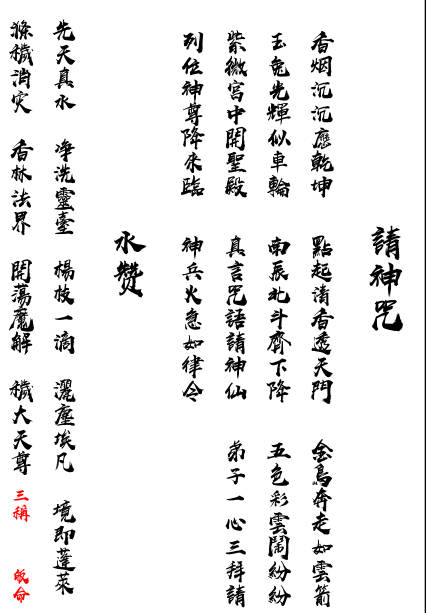 請神咒
香烟沉沉應乾坤 點起清香透天門 金鳥奔走如雲箭
玉兔光輝似車輪 南辰北斗齊下降 五色彩雲鬧紛紛
紫微宮中開聖殿 真言咒語請神仙 弟子一心三拜請
列位神尊降來臨 神兵火急如律令
水贊
先天真水 淨洗靈臺 楊枝一滴 灑塵埃凡 境即蓬萊
滌穢消災 香林法界 開蕩魔解 穢大天尊 三稱 皈命